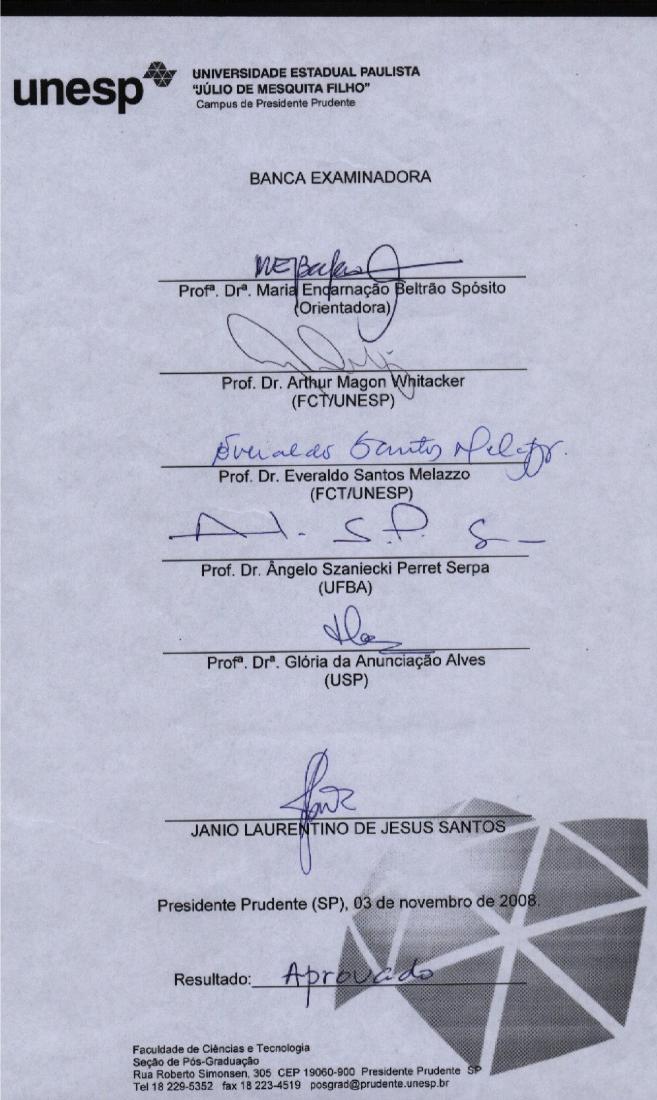 unesp
UNIVERSIDADE ESTADUAL PAULISTA
"JÚLIO DE MESQUITA FILHO"
Campus de Presidente Prudente
BANCA EXAMINADORA
Profª. Drª. Maria Encarnação Beltrão Spósito
(Orientadora)
Prof. Dr. Arthur Magon Whitacker
(FCT/UNESP)
Everaldo Santos Melazzo
Prof. Dr. Everaldo Santos Melazzo
(FCT/UNESP)
Prof. Dr. Ângelo Szaniecki Perret Serpa
(UFBA)
Profª. Drª. Glória da Anunciação Alves
(USP)
JANIO LAURENTINO DE JESUS SANTOS
Presidente Prudente (SP), 03 de novembro de 2008.
Resultado: Aprovado
Faculdade de Ciências e Tecnologia
Seção de Pós-Graduação
Rua Roberto Simonsen, 305 CEP 19060-900 Presidente Prudente SP
Tel 18 229-5352 fax 18 223-4519 posgrad@prudente.unesp.br